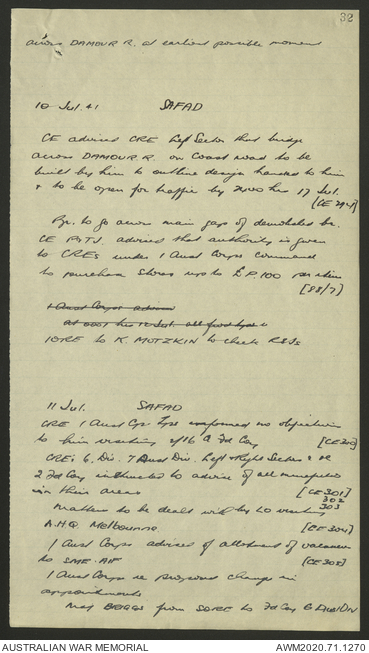 32
across DAMOUR R. at earliest possible moment
10 Jul. 41 SAFAD
CE advised CRE Left Sector that bridge
across DAMOUR. R. on Coast road to be
built by him to outline design handed to him
& to be open for traffic by 2000 hrs 17 Jul.
[CE 294]
to go across main gap of demolished br.
CE P&TJ. advised that authority is given
to CREs under 1 Aust Corps command
to purchase stores up to £P.100 per item
[88/7]
1 Aust Corps advise
at 0001 hrs 12 Jul. all
10RE to K. MOTZKIN to check RSJs
11 Jul. SAFAD
CRE 1 Aust Cps Tps informed no objection
to him visiting 2/16 Fd Coy [CE300]
CREs 6 Div. 7 Aust Div. Left & Right Sectors &
2 Fd Coy instructed to advise of all minefields
in their areas [CE301]
302
303
matters to be dealt with by LO visiting
A.H.Q. Melbourne [CE304]
1 Aust Corps advised of allotment of vacancies
to SME. AIF [CE305]
1 Aust Corps re proposed change in
appointments
Maj BEGGS from SORE to Fd Coy 6 Aust Div
AUSTRALIAN WAR MEMORIAL AWM2020.71.1270